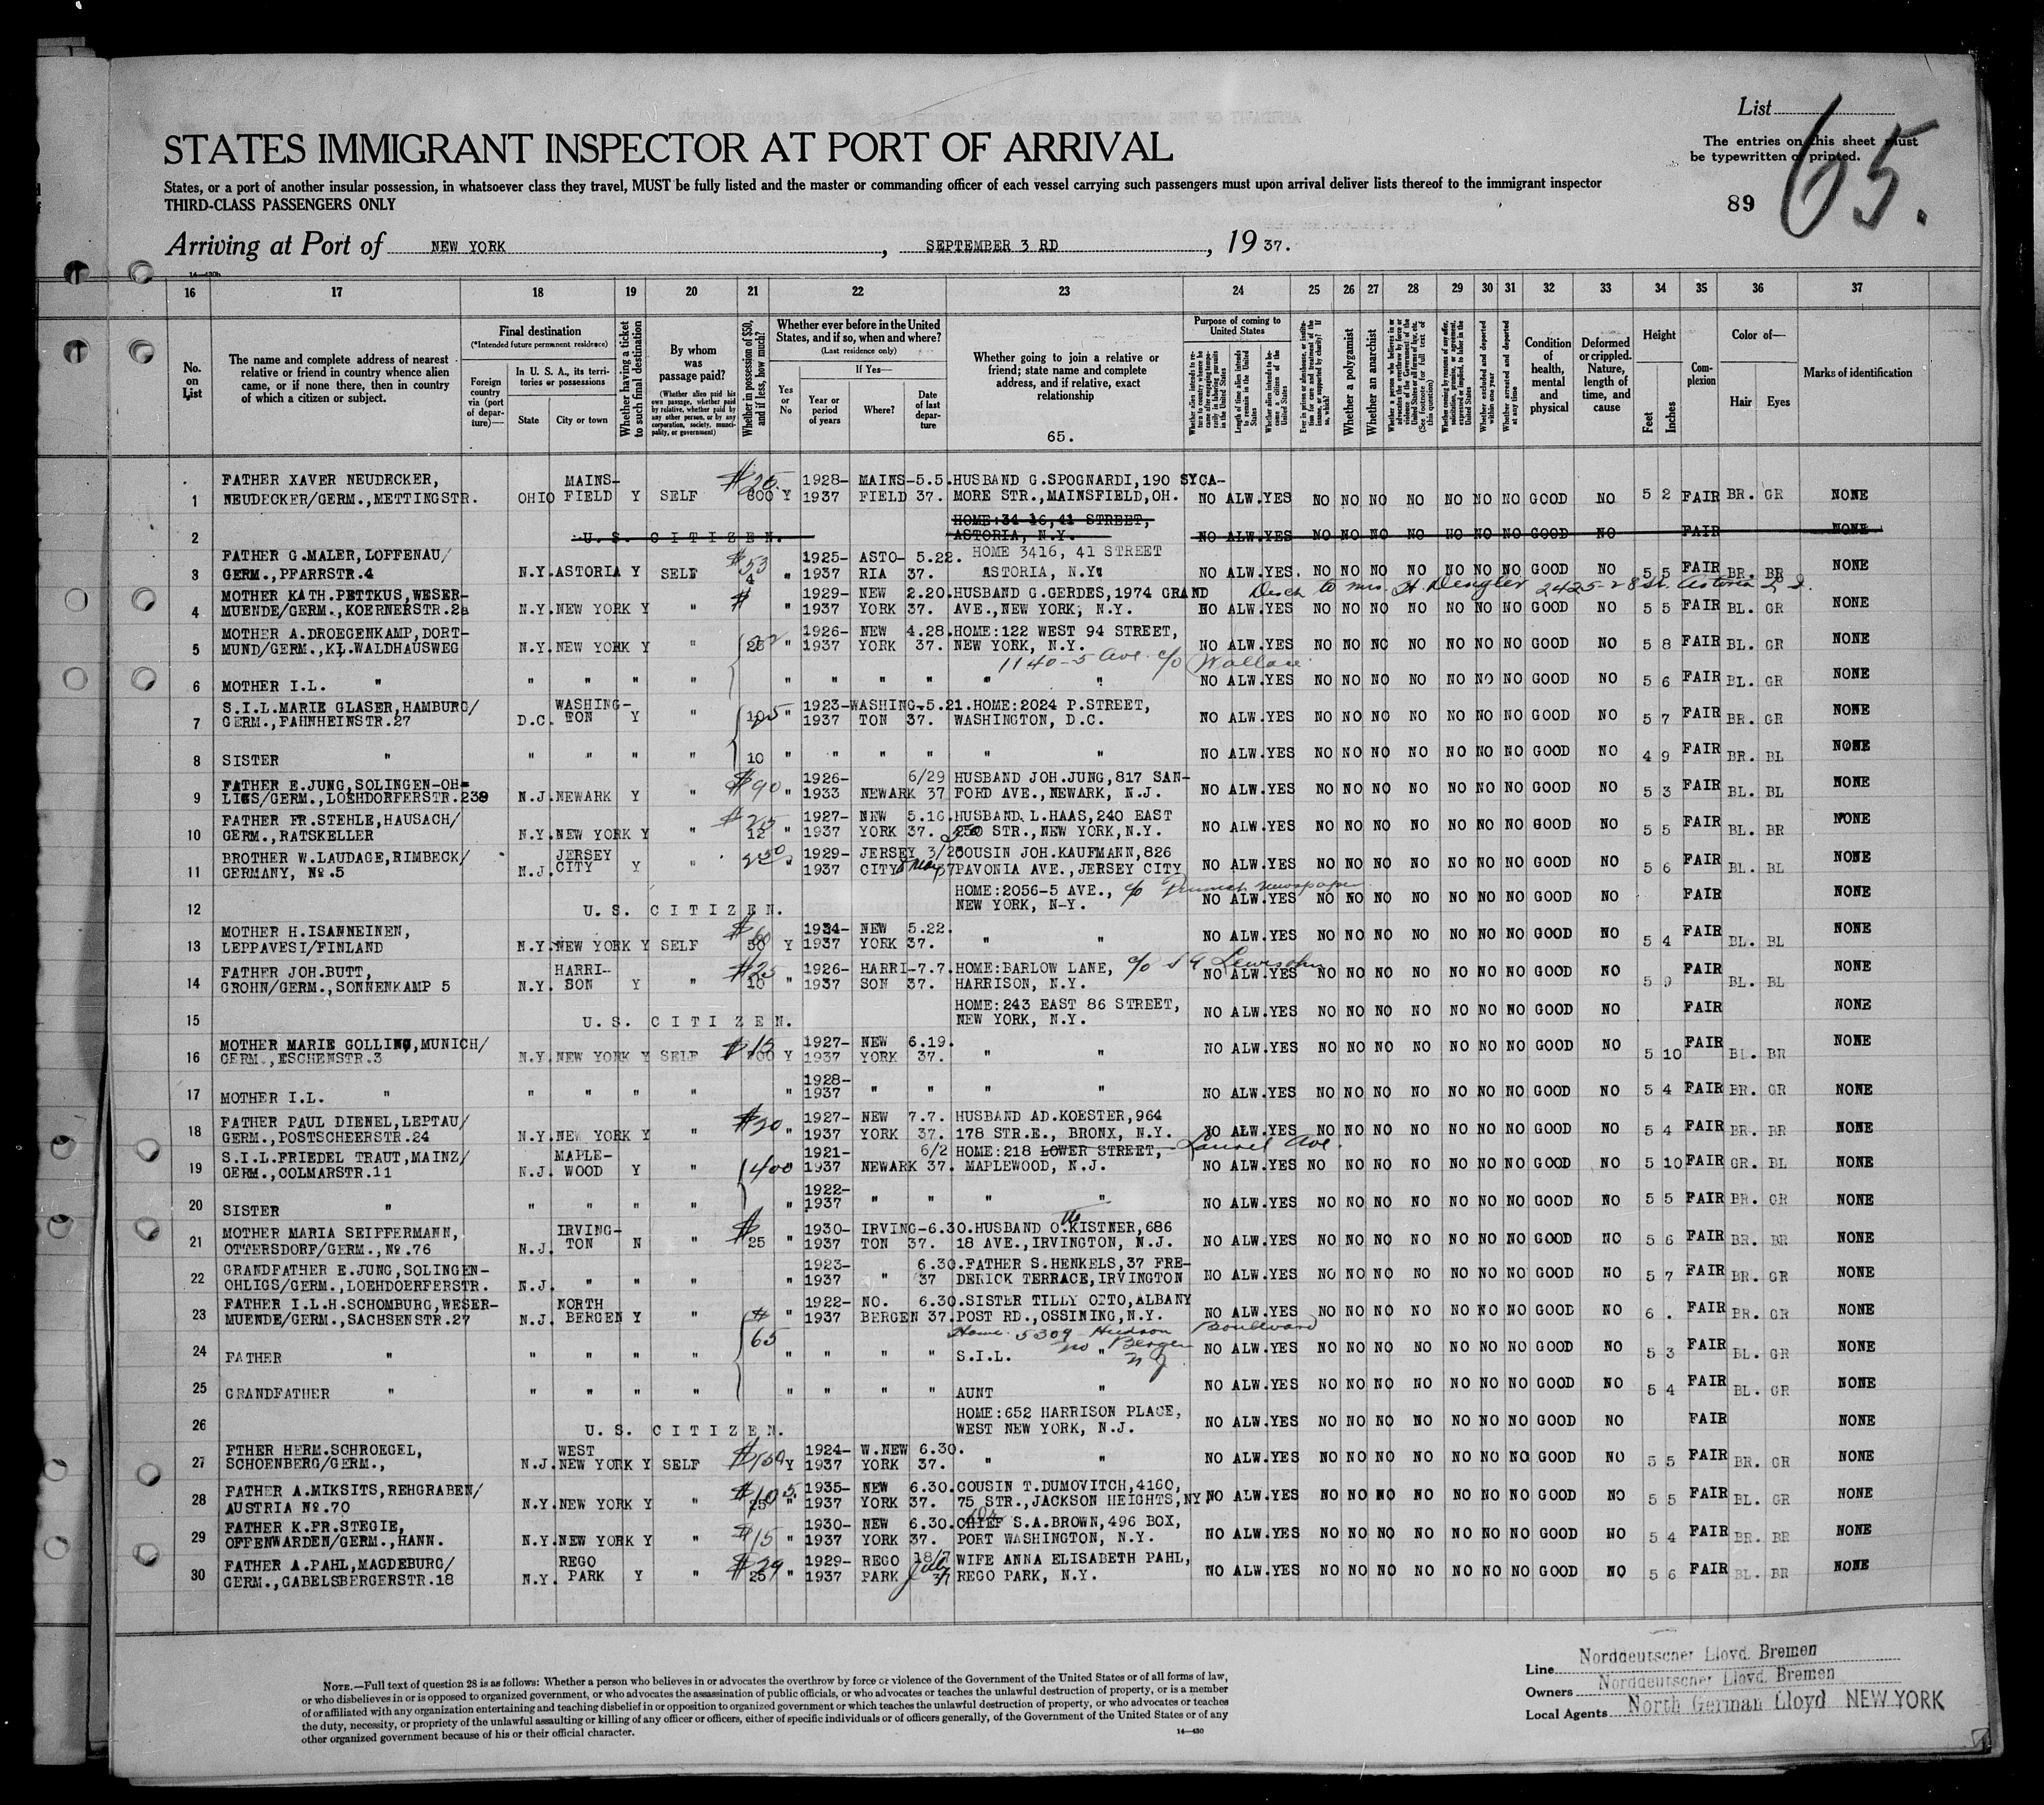 List
STATES IMMIGRANT INSPECTOR AT PORT OF ARRIVAL
The entries on this sheet must
be typewritten or printed.
States, or a port of another insular possession, in whatsoever class they travel, MUST be fully listed and the master or commanding officer of each vessel carrying such passengers must upon arrival deliver lists thereof to the immigrant inspector
THIRD-CLASS PASSENGERS ONLY
89
65.
Arriving at Port of NEW YORK, SEPTEMBER 3 RD, 1937.
16 17 18 19 20 21 22 23 24 25 26 27 28 29 30 31 32 33 34 35 36 37
No. on List
The name and complete address of nearest relative or friend in country whence alien came, or if none there, then in country of which a citizen or subject.
Final destination
(*Intended future permanent residence)
Foreign country via (port of departure)—
In U. S. A., its territories or possessions
State
City or town
Whether having a ticket to such final destination
By whom was passage paid?
(Whether alien paid his own passage, whether paid by relative, whether paid by any other person, or by any corporation, society, municipality, or government)
Whether in possession of $50, and if less, how much?
Whether ever before in the United States, and if so, when and where?
(Last residence only)
Yes or No
If Yes—
Year or period of years
Where?
Date of last departure
Whether going to join a relative or friend; state name and complete address, and if relative, exact relationship
65.
Purpose of coming to United States
Whether a polygamist
Whether an anarchist
Condition of health, mental and physical
Deformed or crippled. Nature, length of time, and cause
Height
Feet
Inches
Complexion
Color of—
Hair
Eyes
Marks of identification
1 FATHER XAVER NEUDECKER, MAINS- $20. 1928- MAINS-5.5. HUSBAND G.SPOGNARDI,190 SYCA-
NEUDECKER/GERM.,METTINGSTR. OHIO FIELD Y SELF 600 Y 1937 FIELD 37. MORE STR.,MAINSFIELD,OH. NO ALW.YES NO NO NO NO NO NO NO GOOD NO 5 2 FAIR BR. GR NONE
HOME:34 16,41 STREET,
2 U.S. CITIZEN. ASTORIA, N.Y. NO ALW.YES NO NO NO NO NO NO NO GOOD NO FAIR NONE
FATHER G.MALER,LOFFENAU/ $53 1925- ASTO- 5.22. HOME 3416, 41 STREET
3 GERM.,PFARRSTR.4 N.Y.ASTORIA Y SELF 4 " 1937 RIA 37. ASTORIA, N.Y. NO ALW.YES. NO NO NO NO NO NO NO GOOD NO 5 5 FAIR BR. BR NONE
Desch to Mrs. H. Dengler 2425-28 St. Astoria L I.
MOTHER KATH.PETTKUS,WESER- $ 1929- NEW 2.20. HUSBAND G.GERDES,1974 GRAND
4 MUENDE/GERM.,KOERNERSTR.2a N.Y.NEW YORK Y " " 1937 YORK 37. AVE.,NEW YORK, N.Y. NO ALW.YES NO NO NO NO NO NO NO GOOD NO 5 5 FAIR BL. GR NONE
MOTHER A.DROEGENKAMP,DORT- 1926- NEW 4.28. HOME:122 WEST 94 STREET,
5 MUND/GERM.,KL.WALDHAUSWEG N.Y.NEW YORK Y " " 1937 YORK 37. NEW YORK, N.Y. NO ALW.YES NO NO NO NO NO NO NO GOOD NO 5 8 FAIR BL. GR NONE
1140-5 Ave. c/o Wallace
6 MOTHER I.L. " " " " " " " " " " " NO ALW.YES NO NO NO NO NO NO NO GOOD NO 5 6 FAIR BL. GR NONE
S.I.L.MARIE GLASER,HAMBURG/ WASHING- 1923- WASHING-5.21. HOME:2024 P.STREET,
7 GERM.,FAHNHEINSTR.27 D.C. TON Y " " 1937 TON 37. WASHINGTON, D.C. NO ALW.YES NO NO NO NO NO NO NO GOOD NO 5 7 FAIR BR. GR NONE
8 SISTER " " " " " 10 " " " " " " NO ALW.YES NO NO NO NO NO NO NO GOOD NO 4 9 FAIR BR. BL NONE
FATHER E.JUNG,SOLINGEN-OH- $90 1926- 6/29 HUSBAND JOH.JUNG,817 SAN-
9 LIGS/GERM.,LOEHDORFERSTR.239 N.J.NEWARK Y " " 1933 NEWARK 37 FORD AVE.,NEWARK, N.J. NO ALW.YES NO NO NO NO NO NO NO GOOD NO 5 3 FAIR BL. BL NONE
FATHER FR.STEHLE,HAUSACH/ $25 1927- NEW 5.16. HUSBAND.L.HAAS,240 EAST
10 GERM.,RATSKELLER N.Y.NEW YORK Y " 12 " 1937 YORK 37. STR.,NEW YORK,N.Y. NO ALW.YES NO NO NO NO NO NO NO GOOD NO 5 5 FAIR BL. BR NONE
BROTHER W.LAUDAGE,RIMBECK/ JERSEY 1929- JERSEY COUSIN JOH.KAUFMANN,826
11 GERMANY, No.5 N.J. CITY Y " " 1937 CITY May 37 PAVONIA AVE.,JERSEY CITY NO ALW.YES NO NO NO NO NO NO NO GOOD NO 5 6 FAIR BL. BL NONE
HOME:2056-5 AVE., c/o newspaper
12 U.S. CITIZEN. NEW YORK, N-Y. NO ALW.YES NO NO NO NO NO NO NO GOOD NO FAIR NONE
MOTHER H.ISANNEINEN, $ 1934- NEW 5.22.
13 LEPPAVESI/FINLAND N.Y.NEW YORK Y SELF Y 1937 YORK 37. " " NO ALW.YES NO NO NO NO NO NO NO GOOD NO 5 4 FAIR BL. BL NONE
FATHER JOH.BUTT, HARRI- $25 1926- HARRI-7.7. HOME:BARLOW LANE, c/o S A Lewisohn
14 GROHN/GERM.,SONNENKAMP 5 N.Y. SON Y " 10 " 1937 SON 37. HARRISON, N.Y. NO ALW.YES NO NO NO NO NO NO NO GOOD NO 5 9 FAIR BL. BL NONE
HOME:243 EAST 86 STREET,
15 U.S. CITIZEN. NEW YORK, N.Y. NO ALW.YES NO NO NO NO NO NO NO GOOD NO FAIR NONE
MOTHER MARIE GOLLING,MUNICH/ $15 1927- NEW 6.19.
16 GERM.,ESCHENSTR.3 N.Y.NEW YORK Y SELF Y 1937 YORK 37. " " NO ALW.YES NO NO NO NO NO NO NO GOOD NO 5 10 FAIR BL. BR NONE
1928-
17 MOTHER I.L. " " " " " " 1937 " " " " NO ALW.YES NO NO NO NO NO NO NO GOOD NO 5 4 FAIR BR. GR NONE
FATHER PAUL DIENEL,LEPTAU/ $20 1927- NEW 7.7. HUSBAND AD.KOESTER,964
18 GERM.,POSTSCHEERSTR.24 N.Y.NEW YORK Y " " 1937 YORK 37. 178 STR.E., BRONX, N.Y. NO ALW.YES NO NO NO NO NO NO NO GOOD NO 5 4 FAIR BR. BR NONE
S.I.L.FRIEDEL TRAUT,MAINZ/ MAPLE- 1921- 6/2 HOME:218 LOWER STREET, Laurel Ave.
19 GERM.,COLMARSTR.11 N.J. WOOD Y " 400 " 1937 NEWARK 37. MAPLEWOOD, N.J. NO ALW.YES NO NO NO NO NO NO NO GOOD NO 5 10 FAIR GR. BL NONE
1922-
20 SISTER " " " " " " 1937 " " " " NO ALW.YES NO NO NO NO NO NO NO GOOD NO 5 5 FAIR BR. GR NONE
MOTHER MARIA SEIFFERMANN, IRVING- $ 1930- IRVING-6.30. HUSBAND O.KISTNER,686
21 OTTERSDORF/GERM.,No.76 N.J. TON N " 25 " 1937 TON 37. 18 AVE.,IRVINGTON, N.J. NO ALW.YES NO NO NO NO NO NO NO GOOD NO 5 6 FAIR BR. BR NONE
GRANDFATHER E.JUNG,SOLINGEN- 1923- 6.30. FATHER S.HENKELS,37 FRE-
22 OHLIGS/GERM.,LOEHDOERFERSTR. N.J. " " " " 1937 " 37 DERICK TERRACE,IRVINGTON NO ALW.YES NO NO NO NO NO NO NO GOOD NO 5 7 FAIR BR. GR NONE
FATHER I.L.H.SCHOMBURG,WESER- NORTH 1922- NO. 6.30. SISTER TILLY OTTO,ALBANY
23 MUENDE/GERM.,SACHSENSTR.27 N.J. BERGEN Y " $ 65 " 1937 BERGEN 37. POST RD.,OSSINING,N.Y. NO ALW.YES NO NO NO NO NO NO NO GOOD NO 6 . FAIR BR. GR NONE
Home. 5309 Hudson Boulevard
No Bergen
N.J.
24 FATHER " " " " " " " " " S.I.L. " NO ALW.YES NO NO NO NO NO NO NO GOOD NO 5 3 FAIR BL. GR NONE
25 GRANDFATHER " " " " " " " " " AUNT " NO ALW.YES NO NO NO NO NO NO NO GOOD NO 5 4 FAIR BL. GR NONE
HOME:652 HARRISON PLACE,
26 U.S. CITIZEN. WEST NEW YORK, N.J. NO ALW.YES NO NO NO NO NO NO NO GOOD NO FAIR NONE
FTHER HERM.SCHROEGEL, WEST 1924- W.NEW 6.30.
27 SCHOENBERG/GERM., N.J. NEW YORK Y SELF $150 Y 1937 YORK 37. " " NO ALW.YES NO NO NO NO NO NO NO GOOD NO 5 5 FAIR BR. GR NONE
FATHER A.MIKSITS,REHGRABEN/ $105 1935- NEW 6.30. COUSIN T.DUMOVITCH,4160,
28 AUSTRIA No.70 N.Y.NEW YORK Y " 25 " 1937 YORK 37. 75 STR.,JACKSON HEIGHTS,NY, NO ALW.YES NO NO NO NO NO NO NO GOOD NO 5 5 FAIR BL. GR NONE
FATHER K.FR.STEGIE, 1930- NEW 6.30. CHIEF S.A.BROWN,496 BOX,
29 OFFENWARDEN/GERM.,HANN. N.Y.NEW YORK Y " $15 " 1937 YORK 37. PORT WASHINGTON, N.Y. NO ALW.YES NO NO NO NO NO NO NO GOOD NO 5 4 FAIR BR. BR NONE
FATHER A.PAHL,MAGDEBURG/ REGO $29 1929- REGO 18/7 WIFE ANNA ELISABETH PAHL,
30 GERM.,GABELSBERGERSTR.18 N.Y. PARK Y " 25 " 1937 PARK July 37 REGO PARK, N.Y. NO ALW.YES NO NO NO NO NO NO NO GOOD NO 5 6 FAIR BL. BR NONE
NOTE.—Full text of question 28 is as follows: Whether a person who believes in or advocates the overthrow by force or violence of the Government of the United States or of all forms of law,
or who disbelieves in or is opposed to organized government, or who advocates the assassination of public officials, or who advocates or teaches the unlawful destruction of property, or is a member
of or affiliated with any organization entertaining and teaching disbelief in or opposition to organized government or which teaches the unlawful destruction of property, or who advocates or teaches
the duty, necessity, or propriety of the unlawful assaulting or killing of any officer or officers, either of specific individuals or of officers generally, of the Government of the United States or of any
other organized government because of his or their official character.
14—430
Line Norddeutscher Lloyd. Bremen
Owners Norddeutscher Lloyd. Bremen
Local Agents North German Lloyd NEW YORK